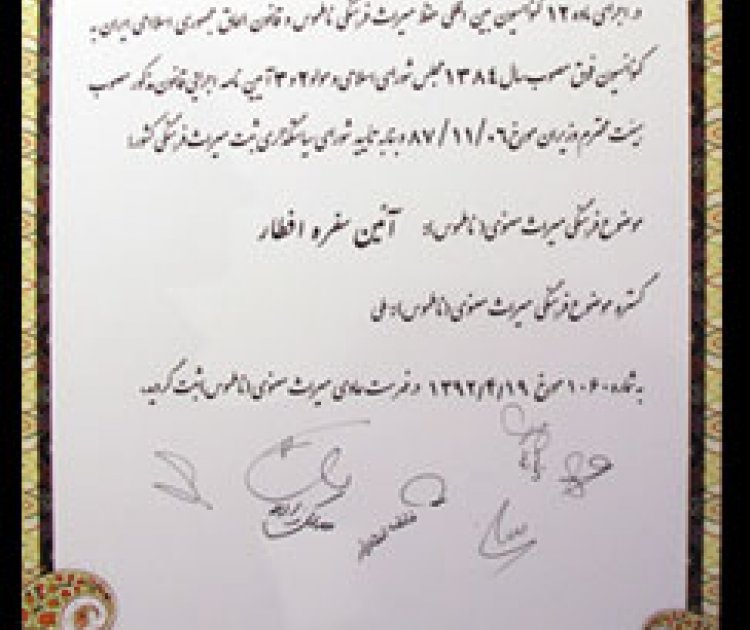 در اجرای ماده ۱۲ کنوانسیون بین المللی حفظ میراث فرهنگی ناملموس و قانون الحاق جمهوری اسلامی ایران به
کنوانسیون فوق مصوب سال ۱۳۸۴ مجلس شورای اسلامی و مواد ۲ و ۳ آیین نامه اجرایی قانون مذکور مصوب
هیئت محترم وزیران مورخ ۸۷/۱۱/۰۶ و بنا به تایید شورای سیاستگذاری ثبت میراث فرهنگی کشور:
موضوع فرهنگی میراث معنوی (ناملموس): آئین سفره افطار
گستره موضوع فرهنگی میراث معنوی (ناملموس): ملی
به شماره ۱۰۶۰ مورخ ۱۳۹۲/۴/۱۹ در فهرست حاوی میراث معنوی (ناملموس) ثبت گردید.